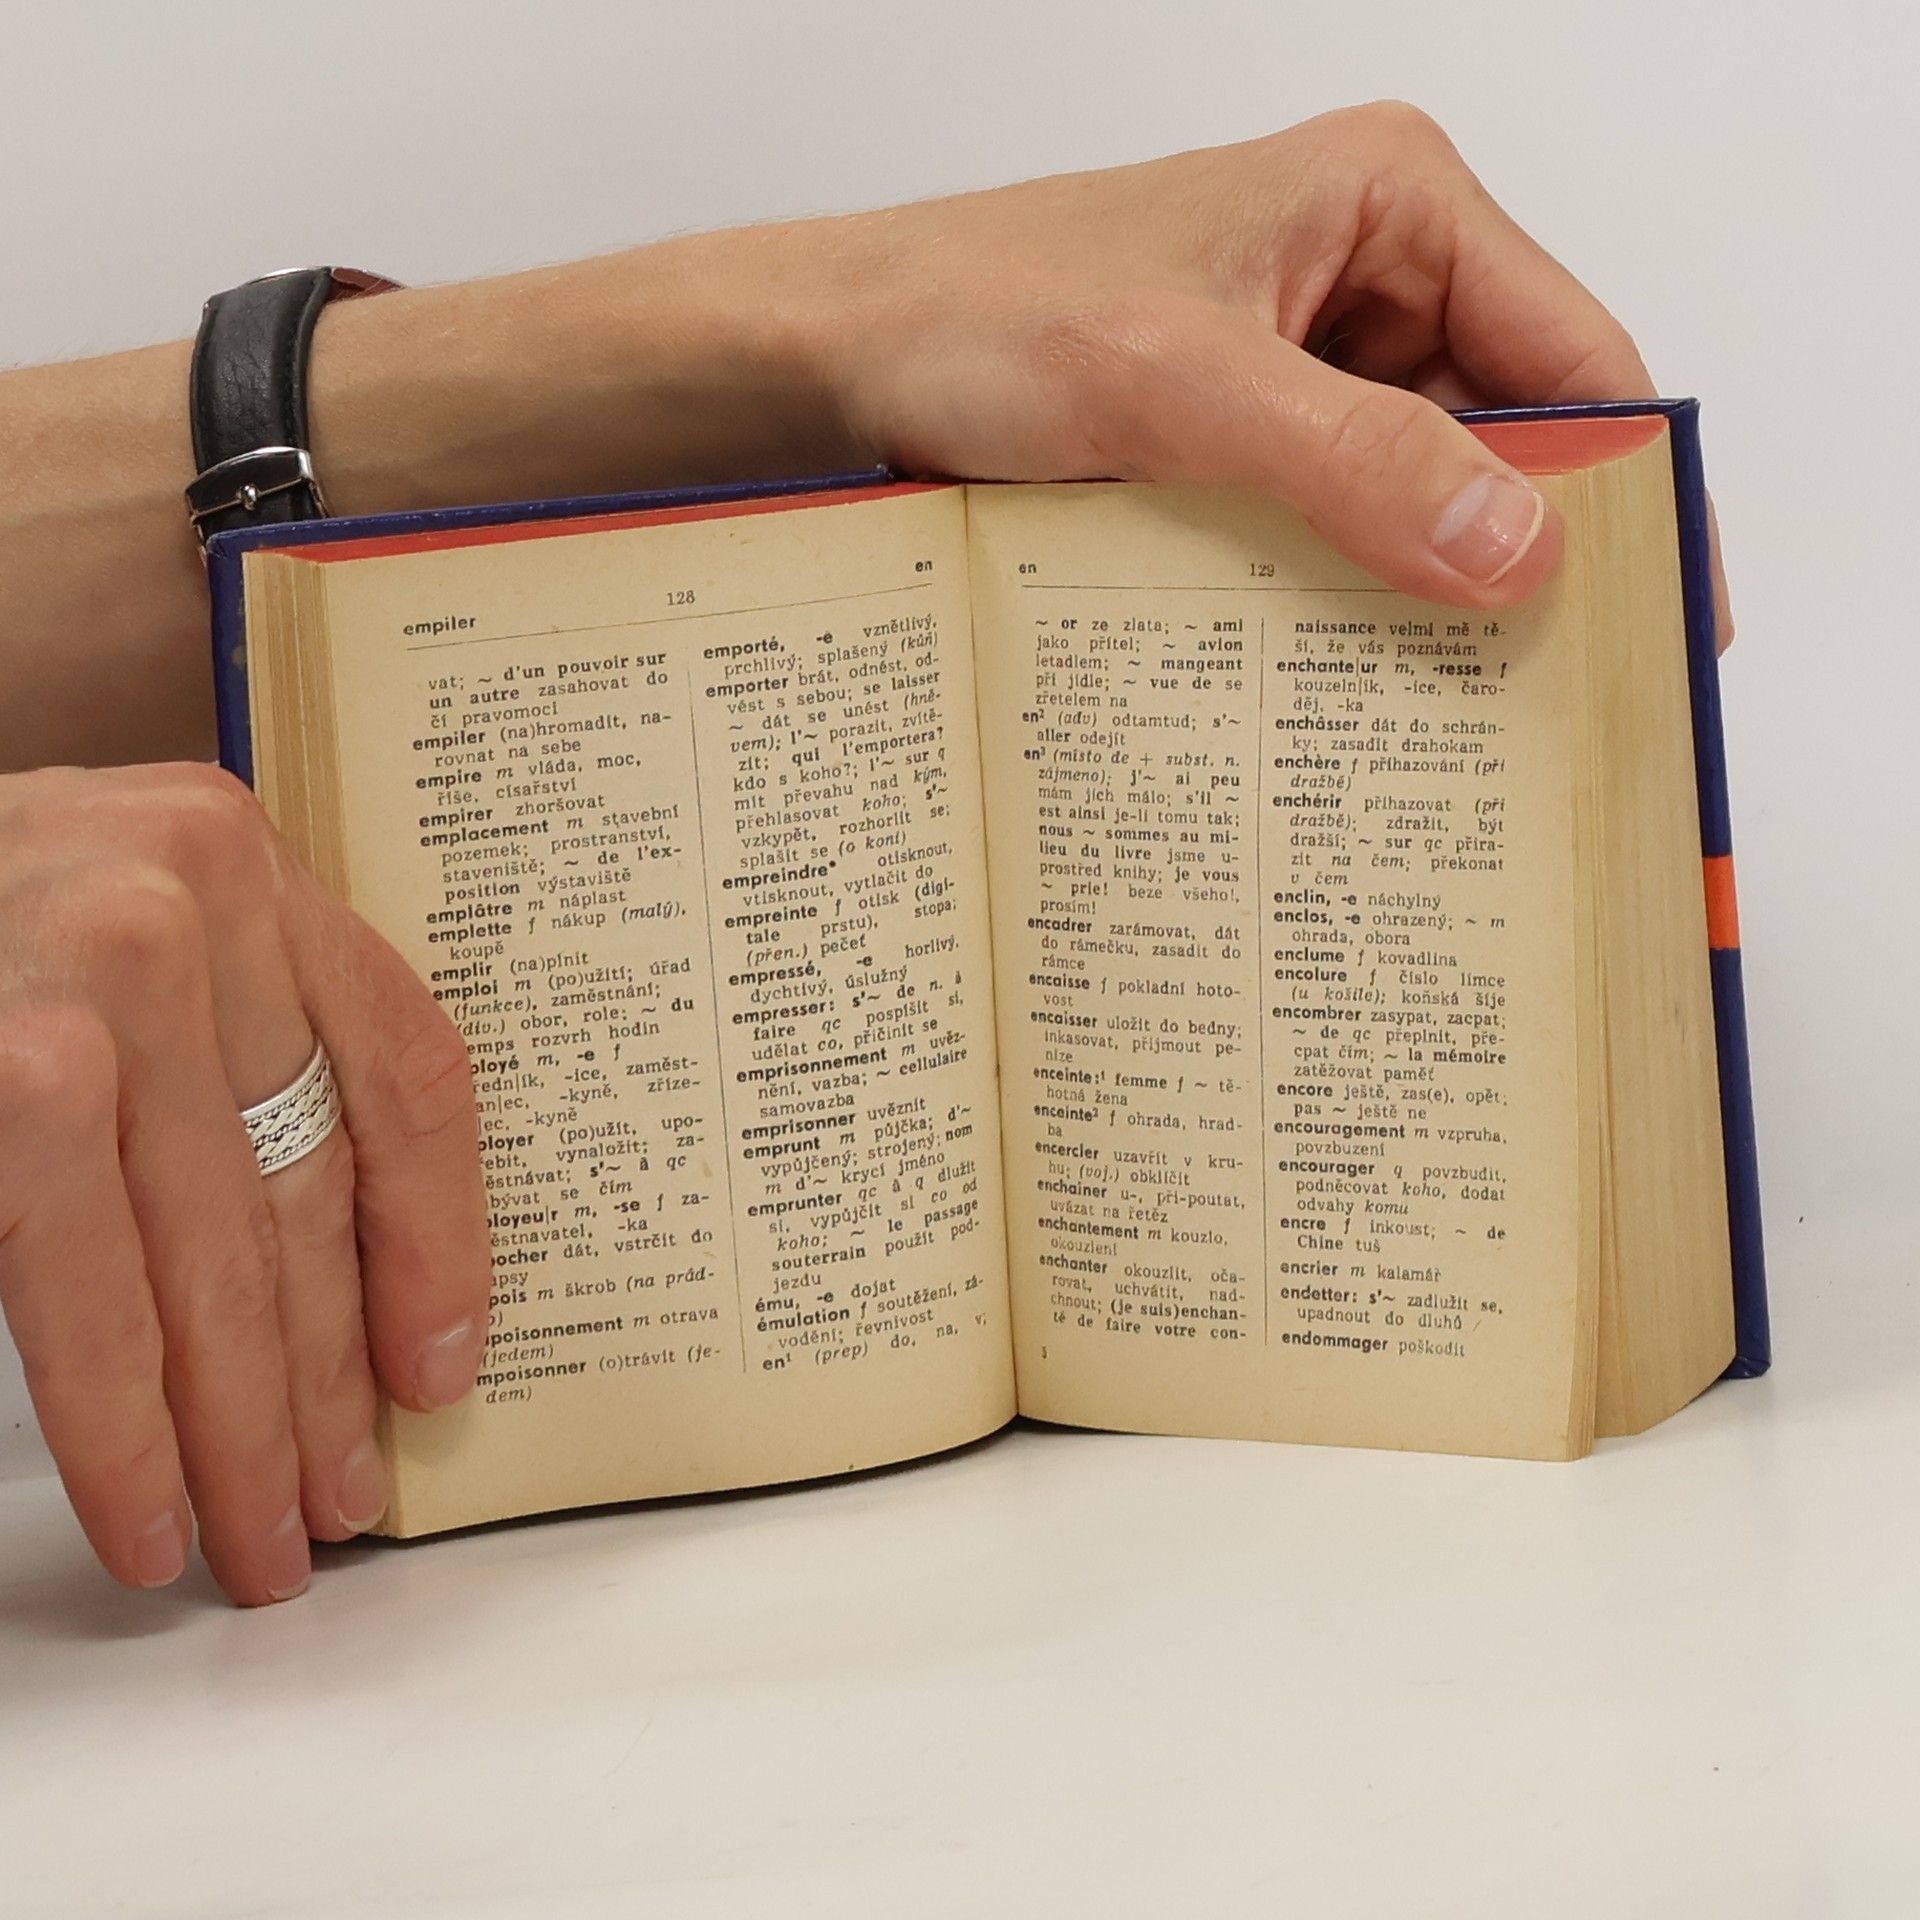 empiler
128
en
vat; ~ d'un pouvoir sur
un autre zasahovat do
čí pravomoci
empiler (na)hromadit, na-
rovnat na sebe
empire m vláda, moc,
říše, císařství
empirer zhoršovat
emplacement m stavební
pozemek; prostranství,
staveniště; ~ de l'ex-
position výstaviště
emplâtre m náplast
emplette f nákup (malý),
koupě
emplir (na)plnit
emploi m (po)užití; úřad
(funkce), zaměstnání;
(div.) obor, role; ~ du
emps rozvrh hodin
ployé m, -e f
ředn|ík, -ice, zaměst-
an|ec, -kyně, zříze-
|ec, -kyně
ployer (po)užít, upo-
řebit, vynaložit; za-
ěstnávat; s'~ à qc
bývat se čím
ployeu|r m, -se f za-
ěstnavatel, -ka
pocher dát, vstrčit do
apsy
pois m škrob (na prád-
o)
poisonnement m otrava
(jedem)
mpoisonner (o)trávit (je-
dem)
emporté, -e vznětlivý,
prchlivý; splašený (kůň)
emporter brát, odnést, od-
vést s sebou; se laisser
~ dát se unést (hně-
vem); l'~ porazit, zvítě-
zit; qui l'emportera?
kdo s koho?; l'~ sur q
mít převahu nad kým,
přehlasovat koho; s'~
vzkypět, rozhorlit se;
splašit se (o koni)
empreindre* otisknout,
vtisknout, vytlačit do
empreinte f otisk (digi-
tale prstu), stopa;
(přen.) pečeť
empressé, -e horlivý,
dychtivý, úslužný
empresser: s'~ de n. à
faire qc pospíšit si,
udělat co, přičinit se
emprisonnement m uvěz-
nění, vazba; ~ cellulaire
samovazba
emprisonner uvěznit
emprunt m půjčka; d'~
vypůjčený; strojený; nom
m d'~ krycí jméno
emprunter qc à q dlužit
si, vypůjčit si co od
koho; ~ le passage
souterrain použít pod-
jezdu
ému, -e dojat
émulation f soutěžení, zá-
vodění; řevnivost
en¹ (prep) do, na, v;
en
129
~ or ze zlata; ~ ami
jako přítel; ~ avion
letadlem; ~ mangeant
při jídle; ~ vue de se
zřetelem na
en² (adv) odtamtud; s'~
aller odejít
en³ (místo de + subst. n.
zájmeno); j'~ ai peu
mám jich málo; s'il ~
est ainsi je-li tomu tak;
nous ~ sommes au mi-
lieu du livre jsme u-
prostřed knihy; je vous
~ prie! beze všeho!,
prosím!
encadrer zarámovat, dát
do rámečku, zasadit do
rámce
encaisse f pokladní hoto-
vost
encaisser uložit do bedny;
inkasovat, přijmout pe-
níze
enceinte:¹ femme f ~ tě-
hotná žena
enceinte² f ohrada, hrad-
ba
encercler uzavřít v kru-
hu; (voj.) obklíčit
enchaîner u-, při-poutat,
uvázat na řetěz
enchantement m kouzlo,
okouzlení
enchanter okouzlit, oča-
rovat, uchvátit, nad-
chnout; (je suis)enchan-
té de faire votre con-
5
naissance velmi mě tě-
ší, že vás poznávám
enchante|ur m, -resse f
kouzeln|ík, -ice, čaro-
děj, -ka
enchâsser dát do schrán-
ky; zasadit drahokam
enchère f přihazování (při
dražbě)
enchérir přihazovat (při
dražbě); zdražit, být
dražší; ~ sur qc přira-
zit na čem; překonat
v čem
enclin, -e náchylný
enclos, -e ohrazený; ~ m
ohrada, obora
enclume f kovadlina
encolure f číslo límce
(u košile); koňská šíje
encombrer zasypat, zacpat;
~ de qc přeplnit, pře-
cpat čím; ~ la mémoire
zatěžovat paměť
encore ještě, zas(e), opět;
pas ~ ještě ne
encouragement m vzpruha,
povzbuzení
encourager q povzbudit,
podněcovat koho, dodat
odvahy komu
encre f inkoust; ~ de
Chine tuš
encrier m kalamář
endetter: s'~ zadlužit se,
upadnout do dluhů
endommager poškodit